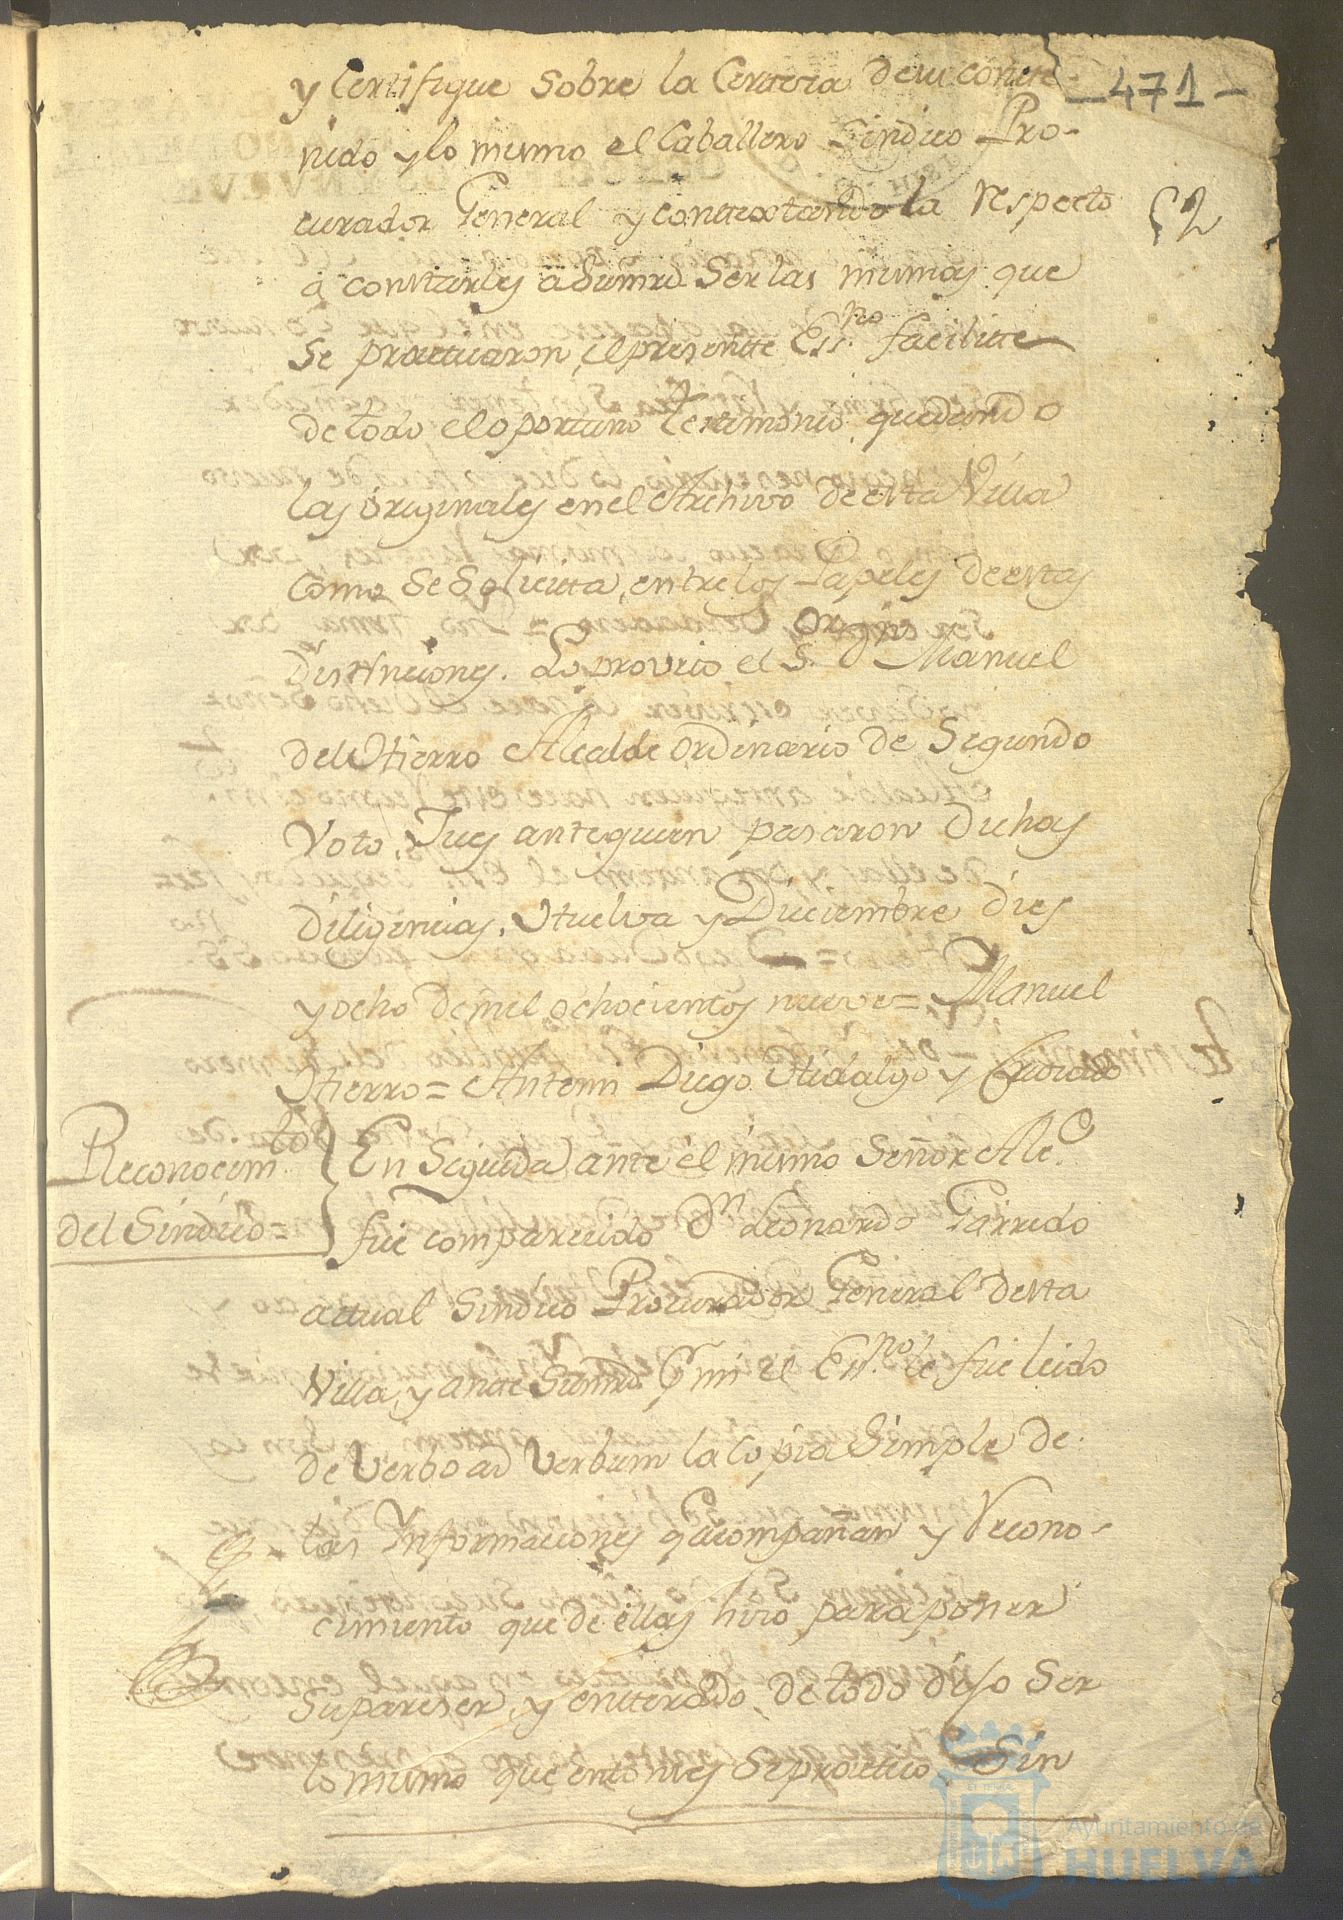 y Certifique Sobre la Certeza de su conte
—471—
nido y lo mismo el Caballero Sindico Pro-
52
curador General y contextando la respecto
à constarles à Sumrd. Ser las mismas que
Se practicaron, el presente Essno facilitte
de todo el oportuno Testimonio, quedando
las originales en el Archivo de esta Villa
Como Se Solicita, entre los Papeles de estas
Distinciones. Lo proveio el Sor. Dn Manuel
del Hierro Alcalde ordinario de Segundo
Voto, Jues antequien pasaron dichas
Diligencias. Huelva y Diciembre dies
y ocho de mil ochocientos nueve = Manuel
Hierro = Antemi Diego Hidalgo y
Reconocimto
del Sindico =
En Seguida ante el mismo Señor Alce.
fue comparecido Dn Leonardo Garrido
actual Sindico Procurador General desta
Villa, y ante Sumrd. Pr mi el Essno le fue leido
de Verbo ad Verbum la Copia Simple de
las Informaciones q acompañan y recono-
cimiento que de ellas hizo, para poner
Su pareser, y enterado de todo dijo Ser
lo mismo que entonces Se practico, Sin
Ayuntamiento de
HUELVA